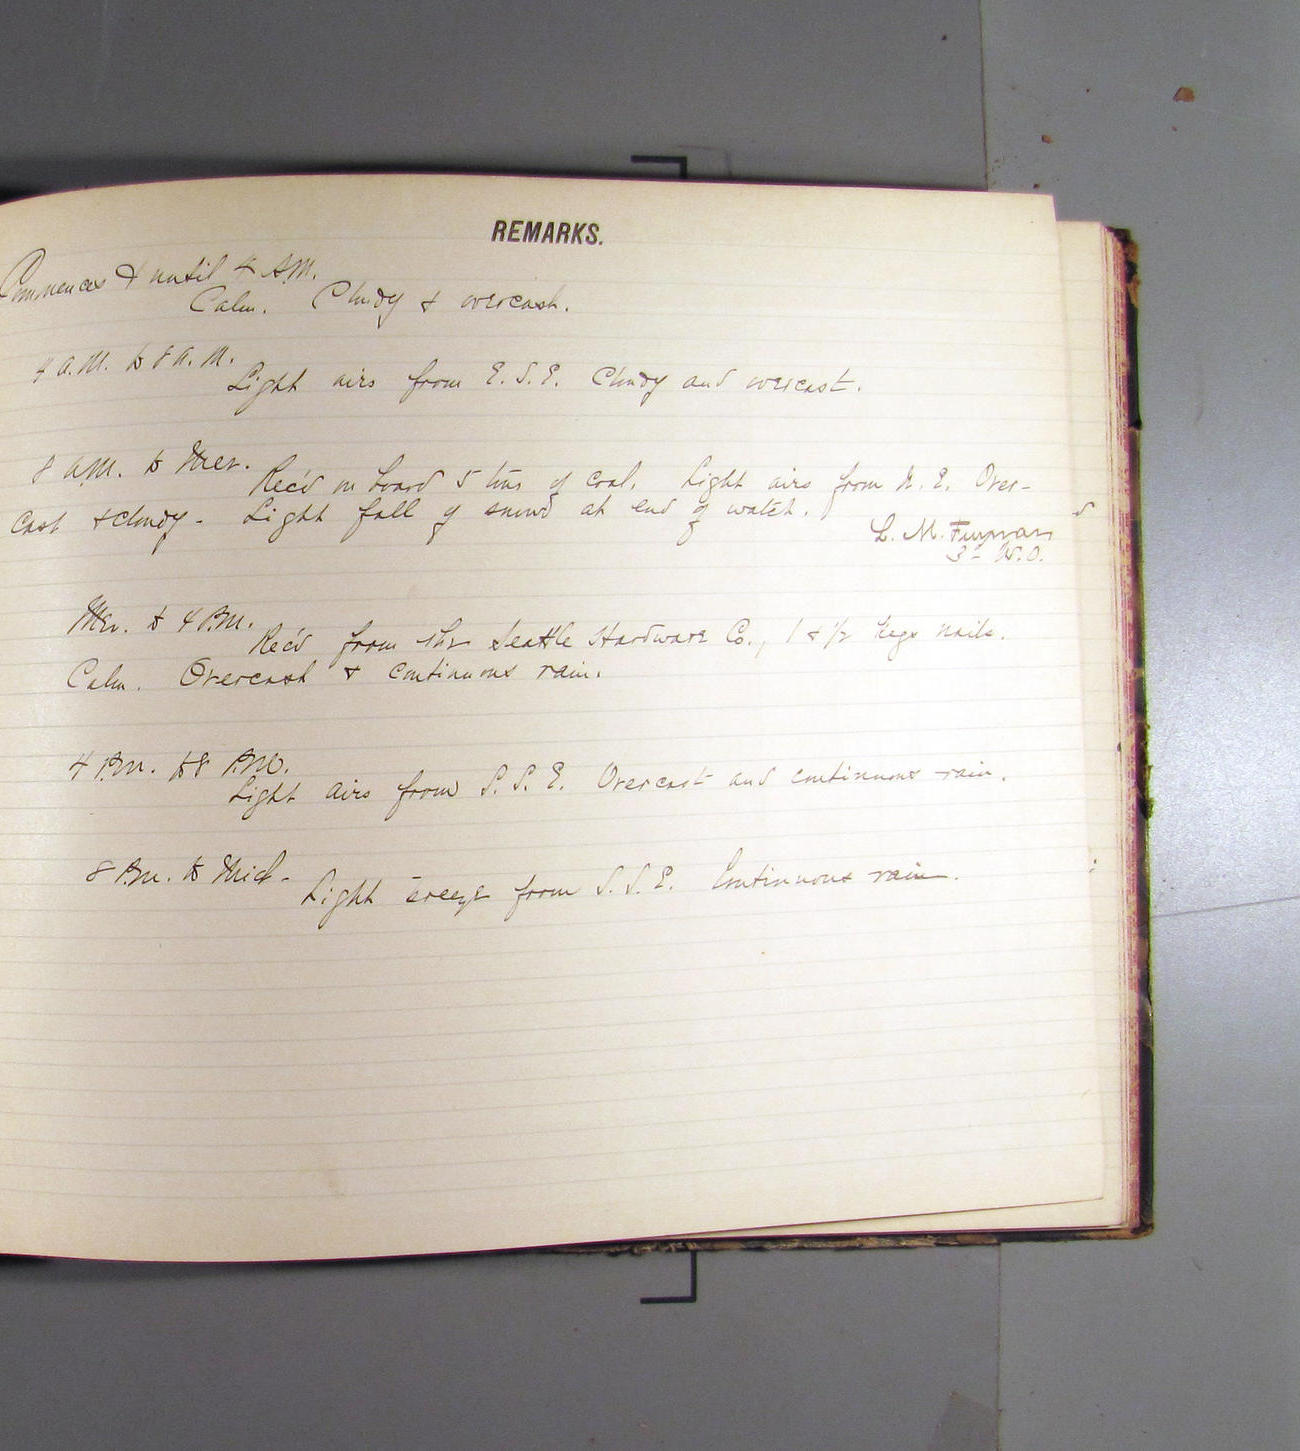 REMARKS.
Commences & until 4 A.M.
Calm. Cloudy & overcast.
4 A.M. to 8 A.M.
Light airs from E.S.E. Cloudy and overcast.
8 AM. to Mer.
Rec'd on board 5 tons of coal. Light airs from N.E. Over-
cast & cloudy - Light fall of snow at end of watch.
L. M.
3- W.O.
Mer. to 4 P.M.
Rec'd from the Seattle Hardware Co., 1 & 1/2 kegs nails.
Calm. Overcast & continuous rain.
4 P.M. to 8 P.M.
Light airs from S.S.E. Overcast and continuous rain.
8 P.M. to Mid-
Light breeze from S.S.E. Continuous rain.